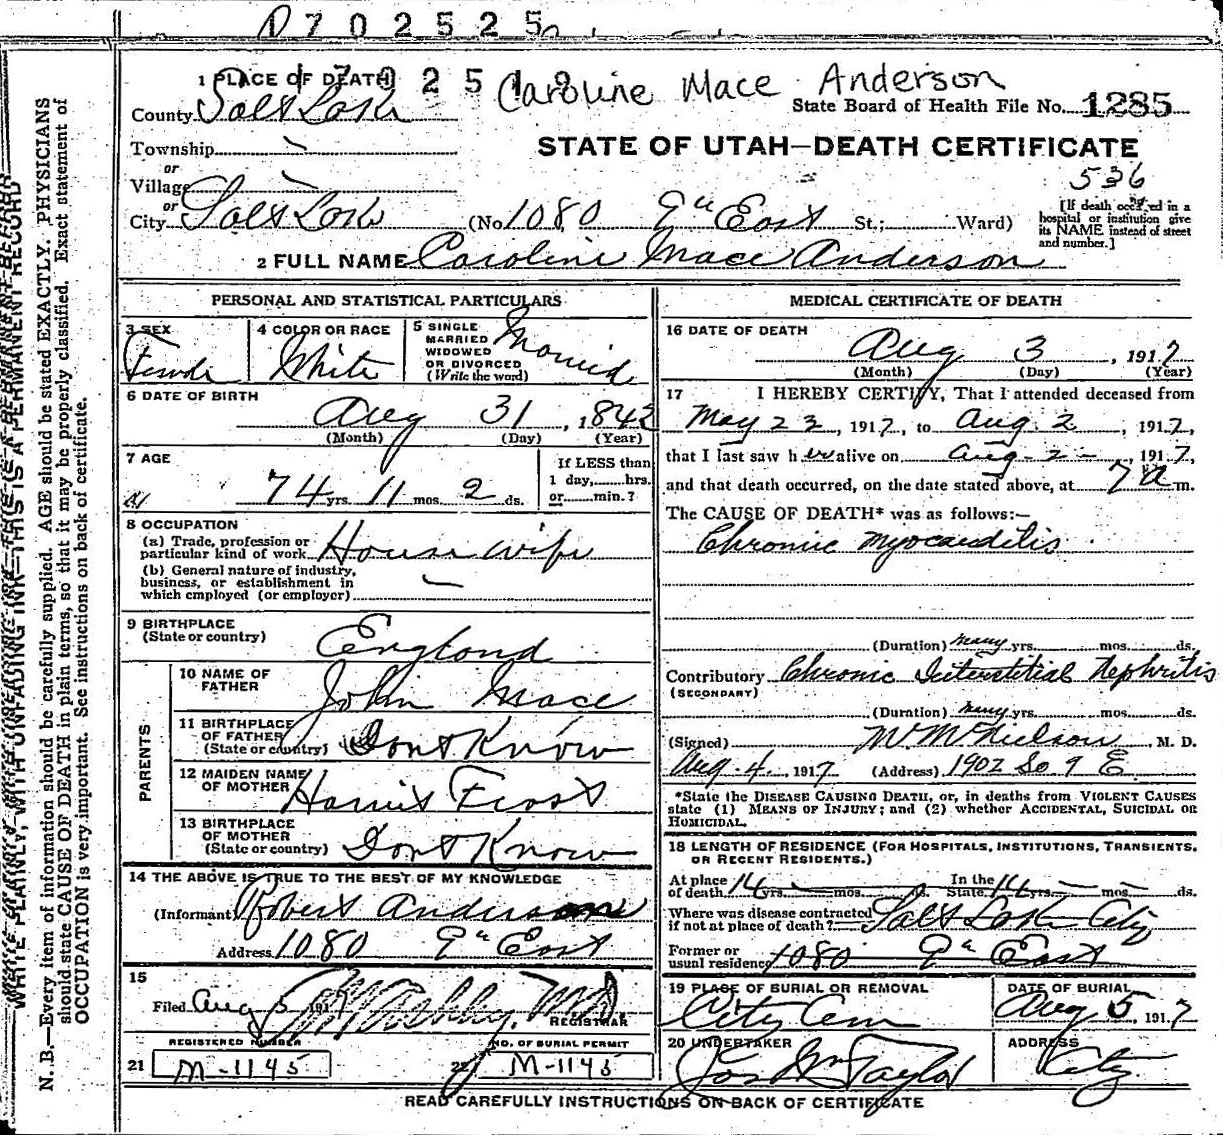 D 7 0 2 5 2 5
Caroline Mace Anderson
1 PLACE OF DEATH
State Board of Health File No. 1285
County Salt Lake
STATE OF UTAH—DEATH CERTIFICATE
Township
or
Village
536
or
City Salt Lake (No. 1080 9th East St.; Ward)
[If death occurred in a hospital or institution give its NAME instead of street and number.]
2 FULL NAME Caroline Mace Anderson
PERSONAL AND STATISTICAL PARTICULARS
3 SEX
Female
4 COLOR OR RACE
White
5 SINGLE MARRIED WIDOWED OR DIVORCED (Write the word)
Married
6 DATE OF BIRTH
Aug 31, 1842
(Month) (Day) (Year)
7 AGE
74 yrs. 11 mos. 2 ds.
If LESS than 1 day, hrs. or min.?
8 OCCUPATION
(a) Trade, profession or particular kind of work House wife
(b) General nature of industry, business, or establishment in which employed (or employer)
9 BIRTHPLACE
(State or country) England
PARENTS
10 NAME OF FATHER John Mace
11 BIRTHPLACE OF FATHER (State or country) Dont Know
12 MAIDEN NAME OF MOTHER Harriet Frost
13 BIRTHPLACE OF MOTHER (State or country) Dont Know
14 THE ABOVE IS TRUE TO THE BEST OF MY KNOWLEDGE
(Informant) Robert Anderson
Address 1080 9th East
15
Filed Aug 5 1917 M.D.
REGISTRAR
REGISTERED NUMBER
21 M-1145
NO. OF BURIAL PERMIT
22 M-1145
MEDICAL CERTIFICATE OF DEATH
16 DATE OF DEATH
Aug 3, 1917
(Month) (Day) (Year)
17 I HEREBY CERTIFY, That I attended deceased from
May 23, 1917, to Aug. 2, 1917,
that I last saw her alive on Aug - 2 -, 1917,
and that death occurred, on the date stated above, at 7 a m.
The CAUSE OF DEATH* was as follows:—
Chronic myocarditis
(Duration) many yrs. mos. ds.
Contributory Chronic Interstitial Nephritis
(SECONDARY)
(Duration) many yrs. mos. ds.
(Signed) M. D.
Aug. 4, 1917 (Address) 1902 So 9 E.
*State the DISEASE CAUSING DEATH, or, in deaths from VIOLENT CAUSES state (1) MEANS OF INJURY; and (2) whether ACCIDENTAL, SUICIDAL OR HOMICIDAL.
18 LENGTH OF RESIDENCE (FOR HOSPITALS, INSTITUTIONS, TRANSIENTS, OR RECENT RESIDENTS.)
At place of death 14 yrs. mos. ds. In the State 14 yrs. mos. ds.
Where was disease contracted if not at place of death? Salt Lake City
Former or usual residence 1080 9th East
19 PLACE OF BURIAL OR REMOVAL
City Cem
DATE OF BURIAL
Aug 5, 1917
20 UNDERTAKER
Jos Wm Taylor
ADDRESS
City
READ CAREFULLY INSTRUCTIONS ON BACK OF CERTIFICATE
WRITE PLAINLY, WITH UNFADING INK—THIS IS A PERMANENT RECORD
N. B.—Every item of information should be carefully supplied. AGE should be stated EXACTLY. PHYSICIANS
should state CAUSE OF DEATH in plain terms, so that it may be properly classified. Exact statement of
OCCUPATION is very important. See instructions on back of certificate.